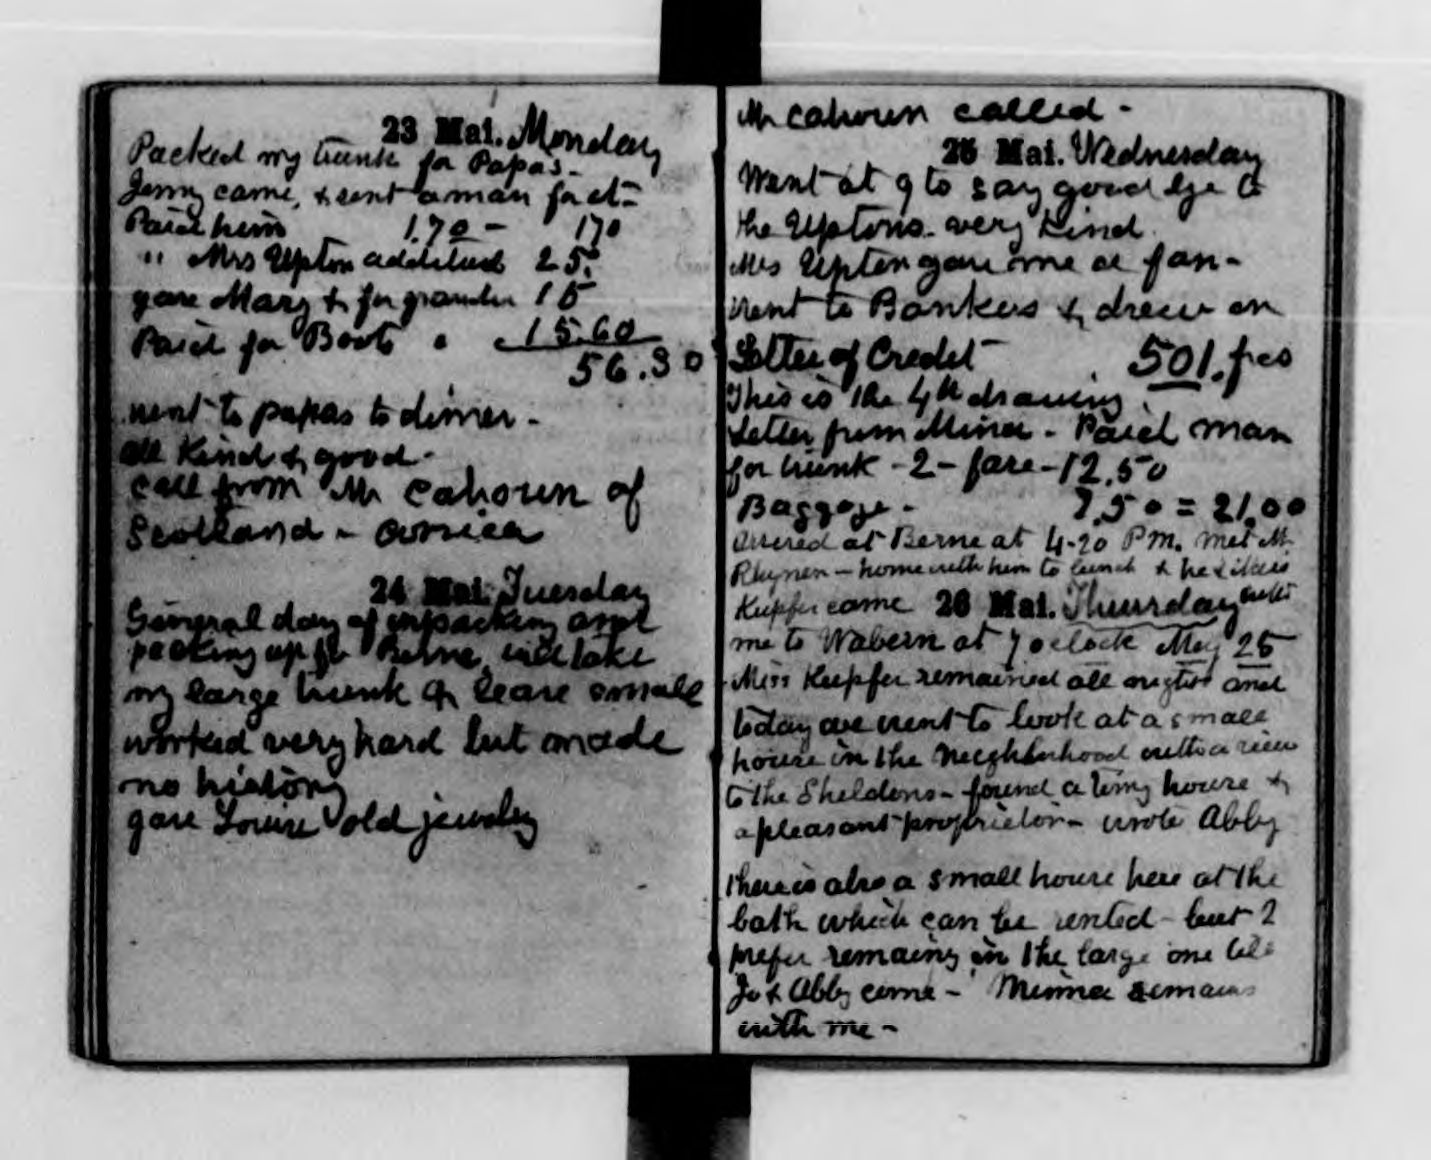 23 Mai. Monday
Packed my trunk for Papas-
Jenny came, & sent a man for it-
Paid him 1.70 - 170
" Mrs Upton additial 25.
gave Mary & for 15
Paid for Boots " 15.60
56.30
went to papas to dinner -
all Kind & good-
call from Mr Cahoun of
Scotland - Corsica
24 Mai. Tuesday
General day of unpacking and
packing up for Berne, will take
my large trunk & leave small
worked very hard but made
no history
gave Louise old jewelry
Mr Cahoun called -
25 Mai. Wednesday
Went at 9 to say good bye to
the Uptons. very Kind.
Mrs Upton gave me a fan-
went to Bankers & drew on
Letter of Credit 501. frcs
This is the 4th drawing.
Letter from Minna - Paid man
for trunk - 2 - fare - 12.50
Baggage - 7.50 = 21,00
arrived at Berne at 4-20 P.m. met Mr
Rhynen - home with him to lunch & he & Miss
Kupfer came 26 Mai. Thursday with
me to Wabern at 7 oclock May 25
Miss Kupfer remained all night and
today we went to look at a small
house in the Neighborhood with a view
to the Sheldons - found a tiny house &
a pleasant proprietor - wrote Abby
there is also a small house here at the
bath which can be rented - but I
prefer remaing in the large one till
Jo & Abby come - Minna remains
with me -